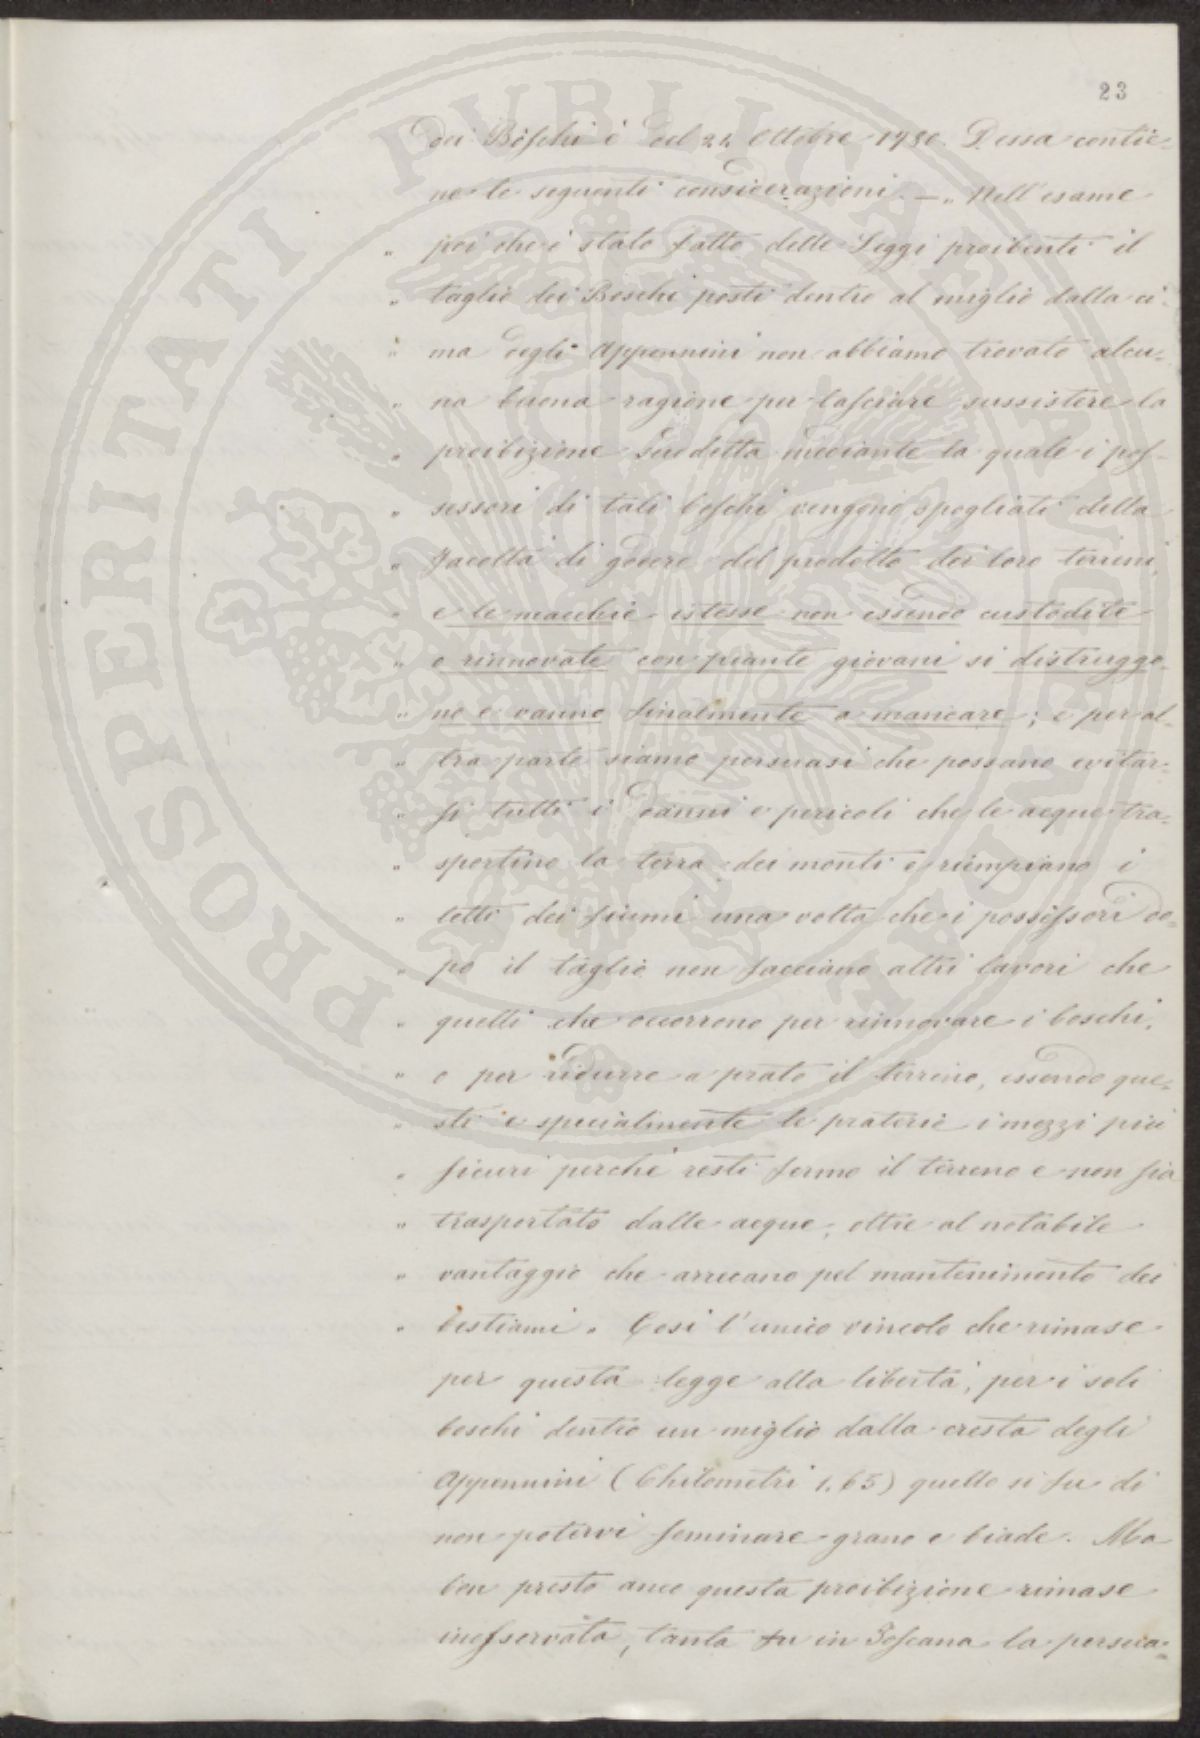 23
dei Boschi è del 24 Ottobre 1780. Dessa contie-
ne le seguenti considerazioni. — „ Nell'esame
„ poi che è stato fatto delle Leggi proibenti il
„ taglio dei Boschi posti dentro al miglio dalla ci-
„ ma degli Appennini non abbiamo trovato alcu-
„ na buona ragione per lasciare sussistere la
„ proibizione suddetta mediante la quale i pos-
„ sessori di tali boschi vengono spogliati della
„ facoltà di godere del prodotto dei loro terreni,
„ e le macchie istesse non essendo custodite
„ e rinnovate con piante giovani si distruggo-
„ no e vanno finalmente a mancare; e per al-
„ tra parte siamo persuasi che possano evitar-
„ si tutti i danni e pericoli che le acque tra-
„ sportino la terra dei monti e riempiano i
„ letti dei fiumi una volta che i possessori do-
„ po il taglio non facciano altri lavori che
„ quelli che occorrono per rinnovare i boschi,
„ o per ridurre a prato il terreno, essendo que-
„ sti e specialmente le praterie i mezzi più
„ sicuri perché resti fermo il terreno e non sia
„ trasportato dalle acque, oltre al notabile
„ vantaggio che arrecano pel mantenimento dei
„ bestiami „ Così l'unico vincolo che rimase
per questa legge alla libertà, per i soli
boschi dentro un miglio dalla cresta degli
Appennini (Chilometri 1.65) quello si fu di
non potervi seminare grano e biade. Ma
ben presto anco questa proibizione rimase
inosservata, tanta fu in Toscana la persua-
PROSPERITATI PUBLICAE AUGENDAE